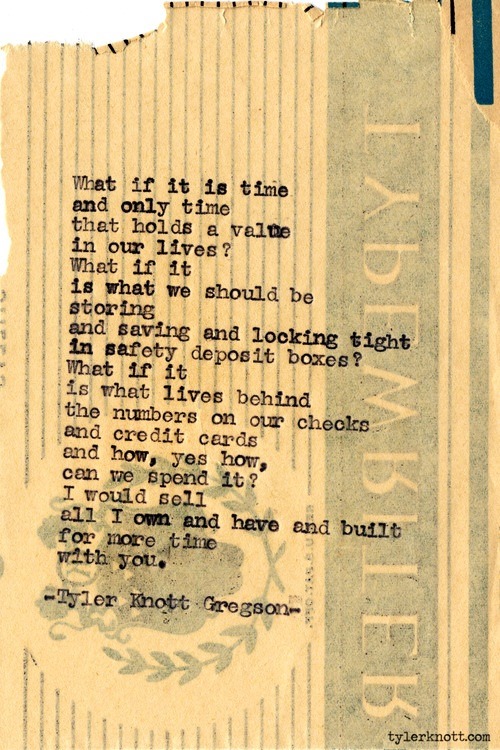 What if it is time
and only time
that holds a value
in our lives?
What if it
is what we should be
storing
and saving and locking tight
in safety deposit boxes?
What if it
is what lives behind
the numbers on our checks
and credit cards
and how, yes how,
can we spend it?
I would sell
all I own and have and built
for more time
with you.
-Tyler Knott Gregson-
TYPEWRITER
tylerknott.com